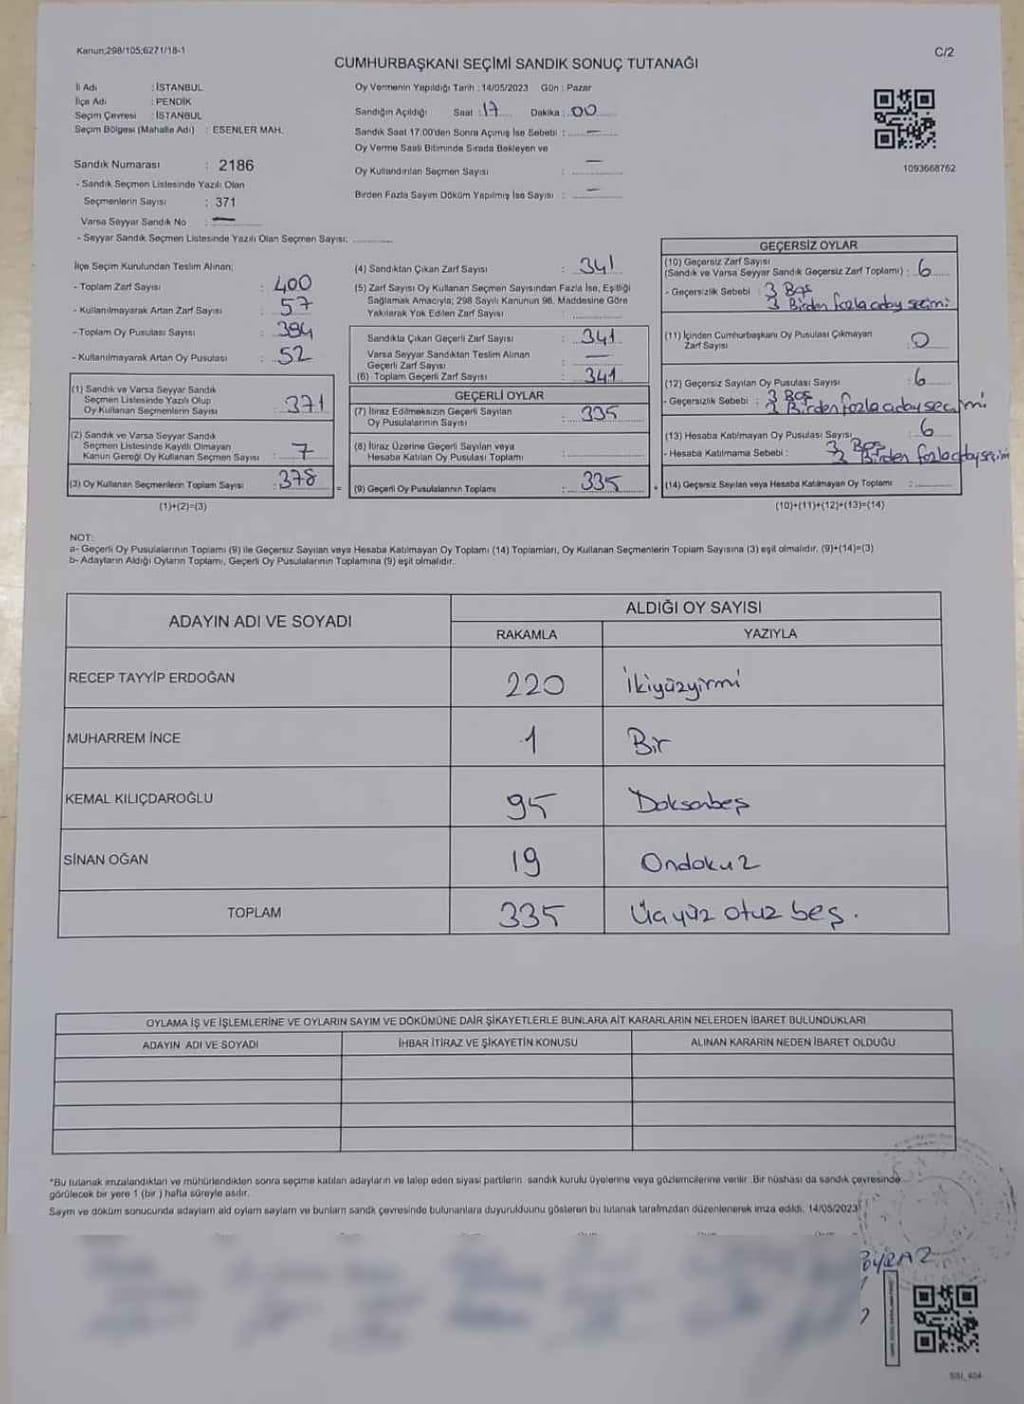 Kanun;298/105;6271/18-1
C/2
CUMHURBAŞKANI SEÇİMİ SANDIK SONUÇ TUTANAĞI
İl Adı : İSTANBUL
İlçe Adı : PENDİK
Seçim Çevresi : İSTANBUL
Seçim Bölgesi (Mahalle Adı) : ESENLER MAH.
Sandık Numarası : 2186
- Sandık Seçmen Listesinde Yazılı Olan
Seçmenlerin Sayısı : 371
Varsa Seyyar Sandık No : —
- Seyyar Sandık Seçmen Listesinde Yazılı Olan Seçmen Sayısı: ............
Oy Vermenin Yapıldığı Tarih : 14/05/2023 Gün : Pazar
Sandığın Açıldığı Saat : 17 Dakika : 00
Sandık Saat 17.00'den Sonra Açımış İse Sebebi : —
Oy Verme Saati Bitiminde Sırada Bekleyen ve
Oy Kullandırılan Seçmen Sayısı : —
Birden Fazla Sayım Döküm Yapılmış İse Sayısı : —
1093668762
İlçe Seçim Kurulundan Teslim Alınan;
- Toplam Zarf Sayısı : 400
- Kullanılmayarak Artan Zarf Sayısı : 57
- Toplam Oy Pusulası Sayısı : 394
- Kullanılmayarak Artan Oy Pusulası : 52
(1) Sandık ve Varsa Seyyar Sandık
Seçmen Listesinde Yazılı Olup
Oy Kullanan Seçmenlerin Sayısı : 371
(2) Sandık ve Varsa Seyyar Sandık
Seçmen Listesinde Kayıtlı Olmayan
Kanun Gereği Oy Kullanan Seçmen Sayısı : 7
(3) Oy Kullanan Seçmenlerin Toplam Sayısı : 378
(1)+(2)=(3)
(4) Sandıktan Çıkan Zarf Sayısı : 341
(5) Zarf Sayısı Oy Kullanan Seçmen Sayısından Fazla İse, Eşitliği
Sağlamak Amacıyla; 298 Sayılı Kanunun 98. Maddesine Göre
Yakılarak Yok Edilen Zarf Sayısı : ............
Sandıkta Çıkan Geçerli Zarf Sayısı : 341
Varsa Seyyar Sandıktan Teslim Alınan
Geçerli Zarf Sayısı : —
(6) Toplam Geçerli Zarf Sayısı : 341
GEÇERLİ OYLAR
(7) İtiraz Edilmeksizin Geçerli Sayılan
Oy Pusulalarının Sayısı : 335
(8) İtiraz Üzerine Geçerli Sayılan veya
Hesaba Katılan Oy Pusulası Toplamı : ............
= (9) Geçerli Oy Pusulalarının Toplamı : 335 +
GEÇERSİZ OYLAR
(10) Geçersiz Zarf Sayısı
(Sandık ve Varsa Seyyar Sandık Geçersiz Zarf Toplamı) : 6
- Geçersizlik Sebebi : 3 Boş
3 Birden fazla aday seçimi
(11) İçinden Cumhurbaşkanı Oy Pusulası Çıkmayan
Zarf Sayısı : 0
(12) Geçersiz Sayılan Oy Pusulası Sayısı : 6
- Geçersizlik Sebebi : 3 Boş
3 Birden fazla aday seçimi
(13) Hesaba Katılmayan Oy Pusulası Sayısı : 6
- Hesaba Katılmama Sebebi : 3 Boş
3 Birden fazla aday seçim
(14) Geçersiz Sayılan veya Hesaba Katılmayan Oy Toplamı : ............
(10)+(11)+(12)+(13)=(14)
NOT:
a- Geçerli Oy Pusulalarının Toplamı (9) ile Geçersiz Sayılan veya Hesaba Katılmayan Oy Toplamı (14) Toplamları, Oy Kullanan Seçmenlerin Toplam Sayısına (3) eşit olmalıdır. (9)+(14)=(3)
b- Adayların Aldığı Oyların Toplamı, Geçerli Oy Pusulalarının Toplamına (9) eşit olmalıdır.
ADAYIN ADI VE SOYADI
ALDIĞI OY SAYISI
RAKAMLA YAZIYLA
RECEP TAYYİP ERDOĞAN 220 İkiyüzyirmi
MUHARREM İNCE 1 Bir
KEMAL KILIÇDAROĞLU 95 Doksanbeş
SİNAN OĞAN 19 Ondokuz
TOPLAM 335 Üçyüz otuz beş.
OYLAMA İŞ VE İŞLEMLERİNE VE OYLARIN SAYIM VE DÖKÜMÜNE DAİR ŞİKAYETLERLE BUNLARA AİT KARARLARIN NELERDEN İBARET BULUNDUKLARI
ADAYIN ADI VE SOYADI İHBAR İTİRAZ VE ŞİKAYETİN KONUSU ALINAN KARARIN NEDEN İBARET OLDUĞU
*Bu tutanak imzalandıktan ve mühürlendikten sonra seçime katılan adayların ve talep eden siyasi partilerin sandık kurulu üyelerine veya gözlemcilerine verilir. Bir nüshası da sandık çevresinde
görülecek bir yere 1 (bir ) hafta süreyle asılır.
Sayım ve döküm sonucunda adayların ald oyların sayların ve bunların sandık çevresinde bulunanlara duyurulduunu gösteren bu tutanak tarafımzdan düzenlenerek imza edildi. 14/05/2023
SSI_404